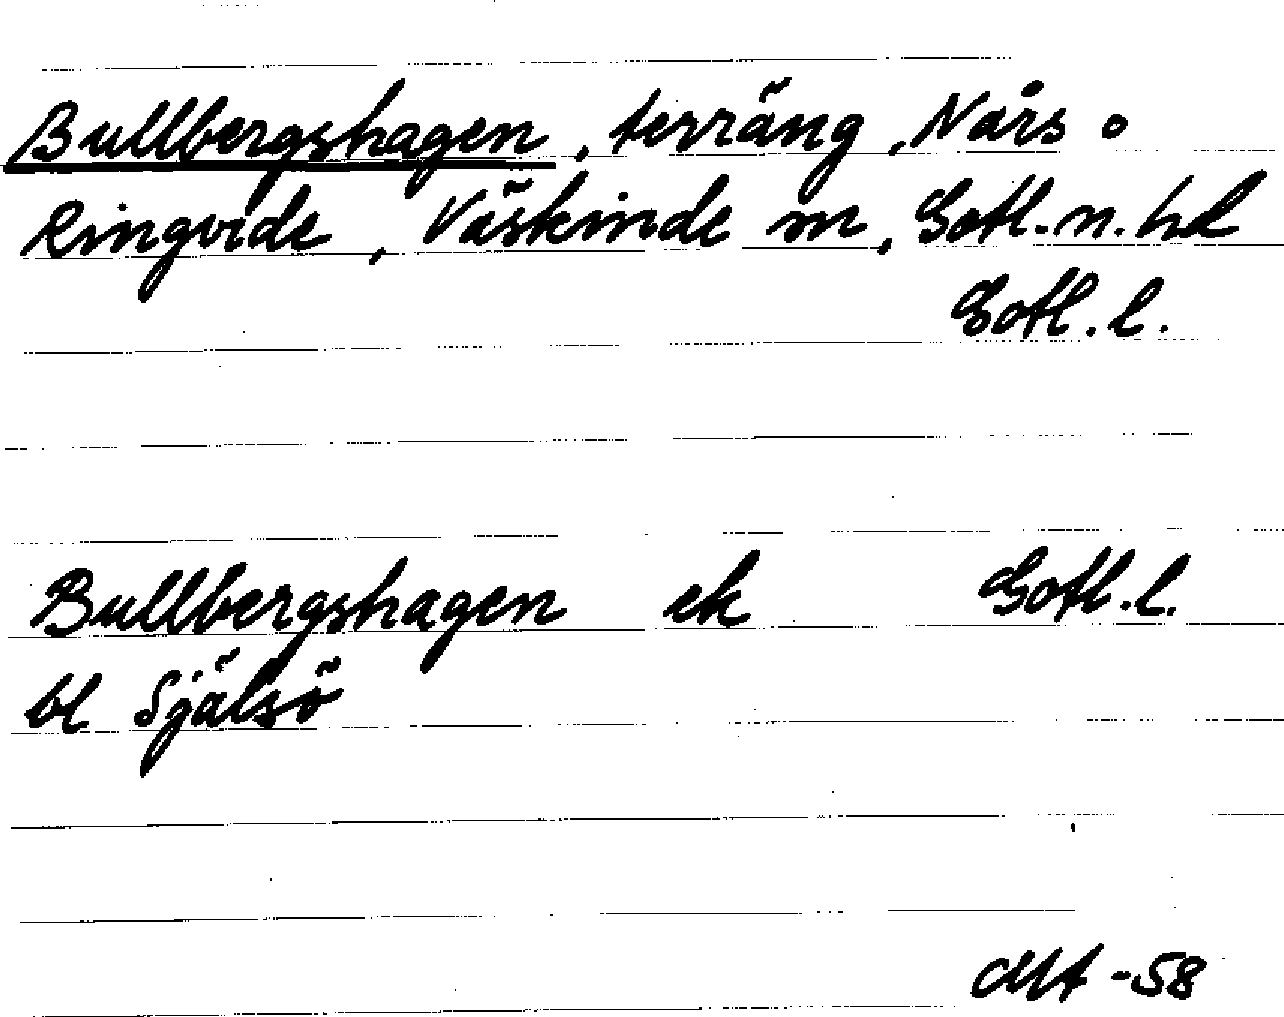 Bullbergshagen, terräng, Nårs o
Ringvide, Väskinde sn, Gotl. n. hd
Gotl. l.
Bullbergshagen ek Gotl. l.
bl Själsö
-58